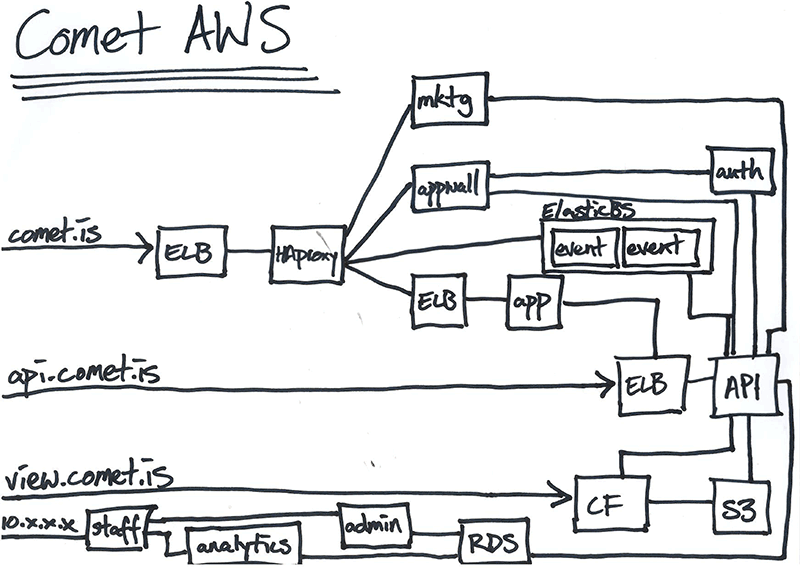 Comet AWS
mktg
appwall
auth
ElasticBS
event event
comet.is
ELB
HAproxy
ELB
app
api.comet.is
ELB
API
view.comet.is
CF
S3
10.x.x.x
staff
admin
analytics
RDS